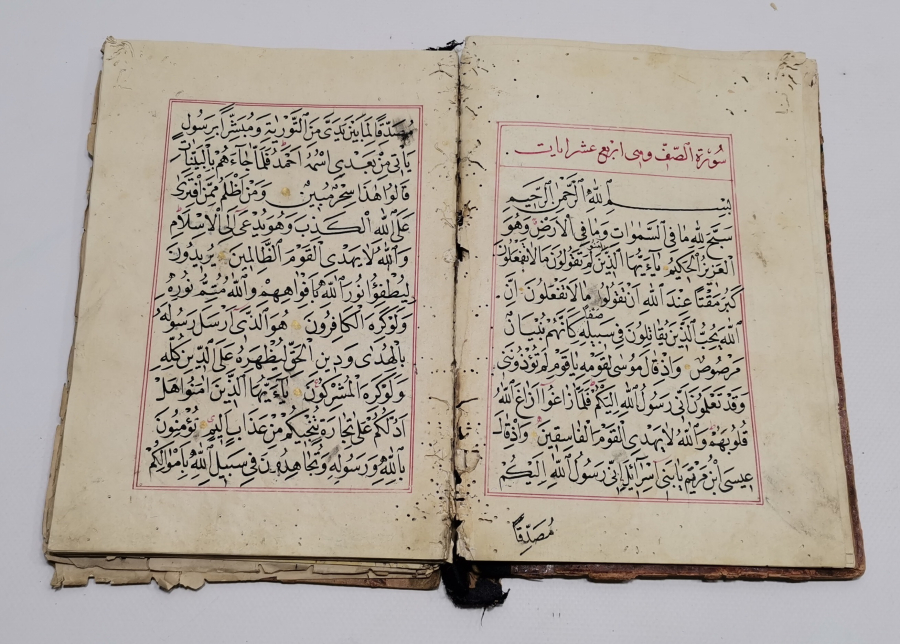 سورة الصف وهى اربع عشر ايات
بسم الله الرحمن الرحيم
سبح لله ما فى السموات وما فى الارض وهو
العزيز الحكيم ياءيها الذين امنوا لم تقولون ما لا تفعلون
كبر مقتا عند الله ان تقولوا ما لا تفعلون ان
الله يحب الذين يقاتلون فى سبيله صفا كانهم بنيان
مرصوص واذ قال موسى لقومه ياقوم لم تؤذوننى
وقد تعلمون انى رسول الله اليكم فلما زاغوا ازاغ الله
قلوبهم والله لا يهدى القوم الفاسقين واذ قال
عيسى ابن مريم يابنى اسرائيل انى رسول الله اليكم
مُصَدِّقاً
مصدقا لما بين يدى من التورية ومبشرا برسول
ياتى من بعدى اسمه احمد فلما جاءهم بالبينات
قالوا هذا سحر مبين ومن اظلم ممن افترى
على الله الكذب وهو يدعى الى الاسلام
والله لا يهدى القوم الظالمين يريدون
ليطفؤا نور الله بافواههم والله متم نوره
ولو كره الكافرون هو الذى ارسل رسوله
بالهدى ودين الحق ليظهره على الدين كله
ولو كره المشركون ياءيها الذين امنوا هل
ادلكم على تجارة تنجيكم من عذاب اليم تؤمنون
بالله ورسوله وتجاهدون فى سبيل الله باموالكم